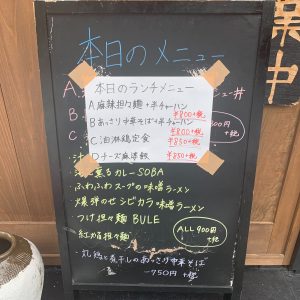 本日のメニュー
本日のランチメニュー
A 麻辣担々麺+半チャーハン
¥800+税
B あっさり中華そば+半チャーハン
¥800+税
C 油淋鶏定食
¥850+税
D チーズ麻婆飯
¥850+税
カレーSOBA
ふわふわスープの味噌ラーメン
爆弾のせシビカラ味噌ラーメン
つけ担々麺 BULE
紅焔担々麺
ALL 900円
+税
煮干しのあっさり中華そば
750円+税